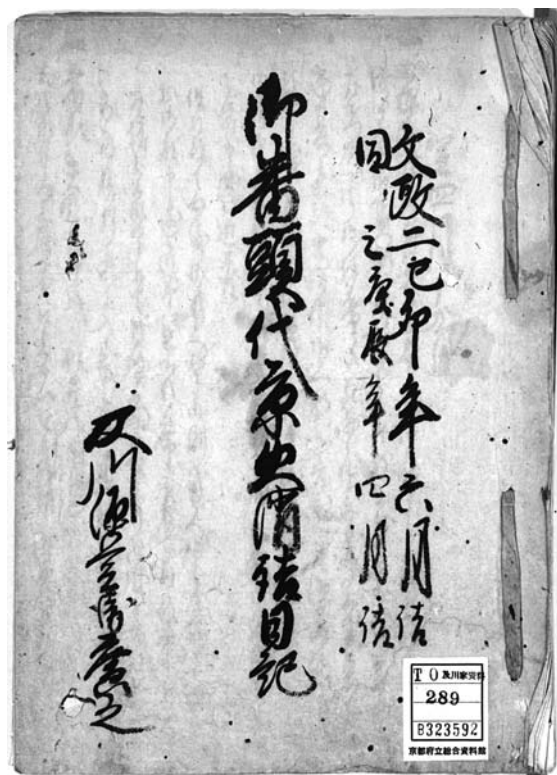 文政二己卯年六月詰
同三庚辰年四月詰
御番頭代京火消詰日記
及川源兵衛
T O 及川家資料
289
B323592
京都府立総合資料館